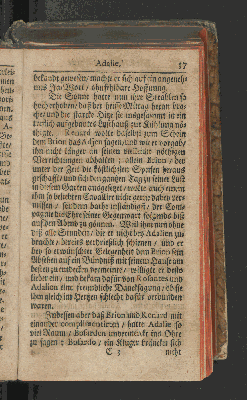 Adalie. 37
bekandt gewesen/ machte er sich auf ein angeneh-
mes Ja-Wort/ unfehlbare Hoffnung.
Die Sonne hatte nun ihre Strahlen so
hoch erhoben/ daß der heiße Mittag heran bra-
che/ und die starcke Hitze sie insgesammt in ein
zierlich aufgebautes Lusthauß zur Kühlung nö-
thigte. Renard wolte daselbst zum Schein
dem Brion das Adieu sagen/ und vor-
ihn nicht länger an seinen
Verrichtungen abhalten; allein Brion/ der
unter der Zeit die köstlichsten Speisen heraus
geschafft/ und sich den gantzen Tag zu seiner Lust
in diesem Garten ausgesetzet/ wolte auch einen
ihm so beliebten Cavallier nicht gerne dabey ver-
missen/ sondern bathe inständigst/ der Com-
pagnie die Ehre seiner Gegenwart folgends biß
auf den Abend zu gönnen. Weil ihm nun ohne
dis alle Stunden/ die er nicht bey Adalien zu
brachte/ bereits verdrießlich schienen/ und er
bey so erwünschter Gelegenheit dem Brion sein
Absehen auf ein Bündniß mit seinem Hause am
besten zu entdecken vermeynte/ willigte er end-
lich ein/ und bekam dafür von Rosantes und
Adalien eine freundliche Dancksagung/ ob sie
ihm gleich im Hertzen schlecht dafür verbunden
waren.
Indessen aber daß Brion und Renard mit
einander complimentirten/ hatte Adalie so
viel Raum/ Bosardo unvermerckt ins Ohr
zu sagen: Bosardo/ ein kluger Krancker sich
C 3 nicht